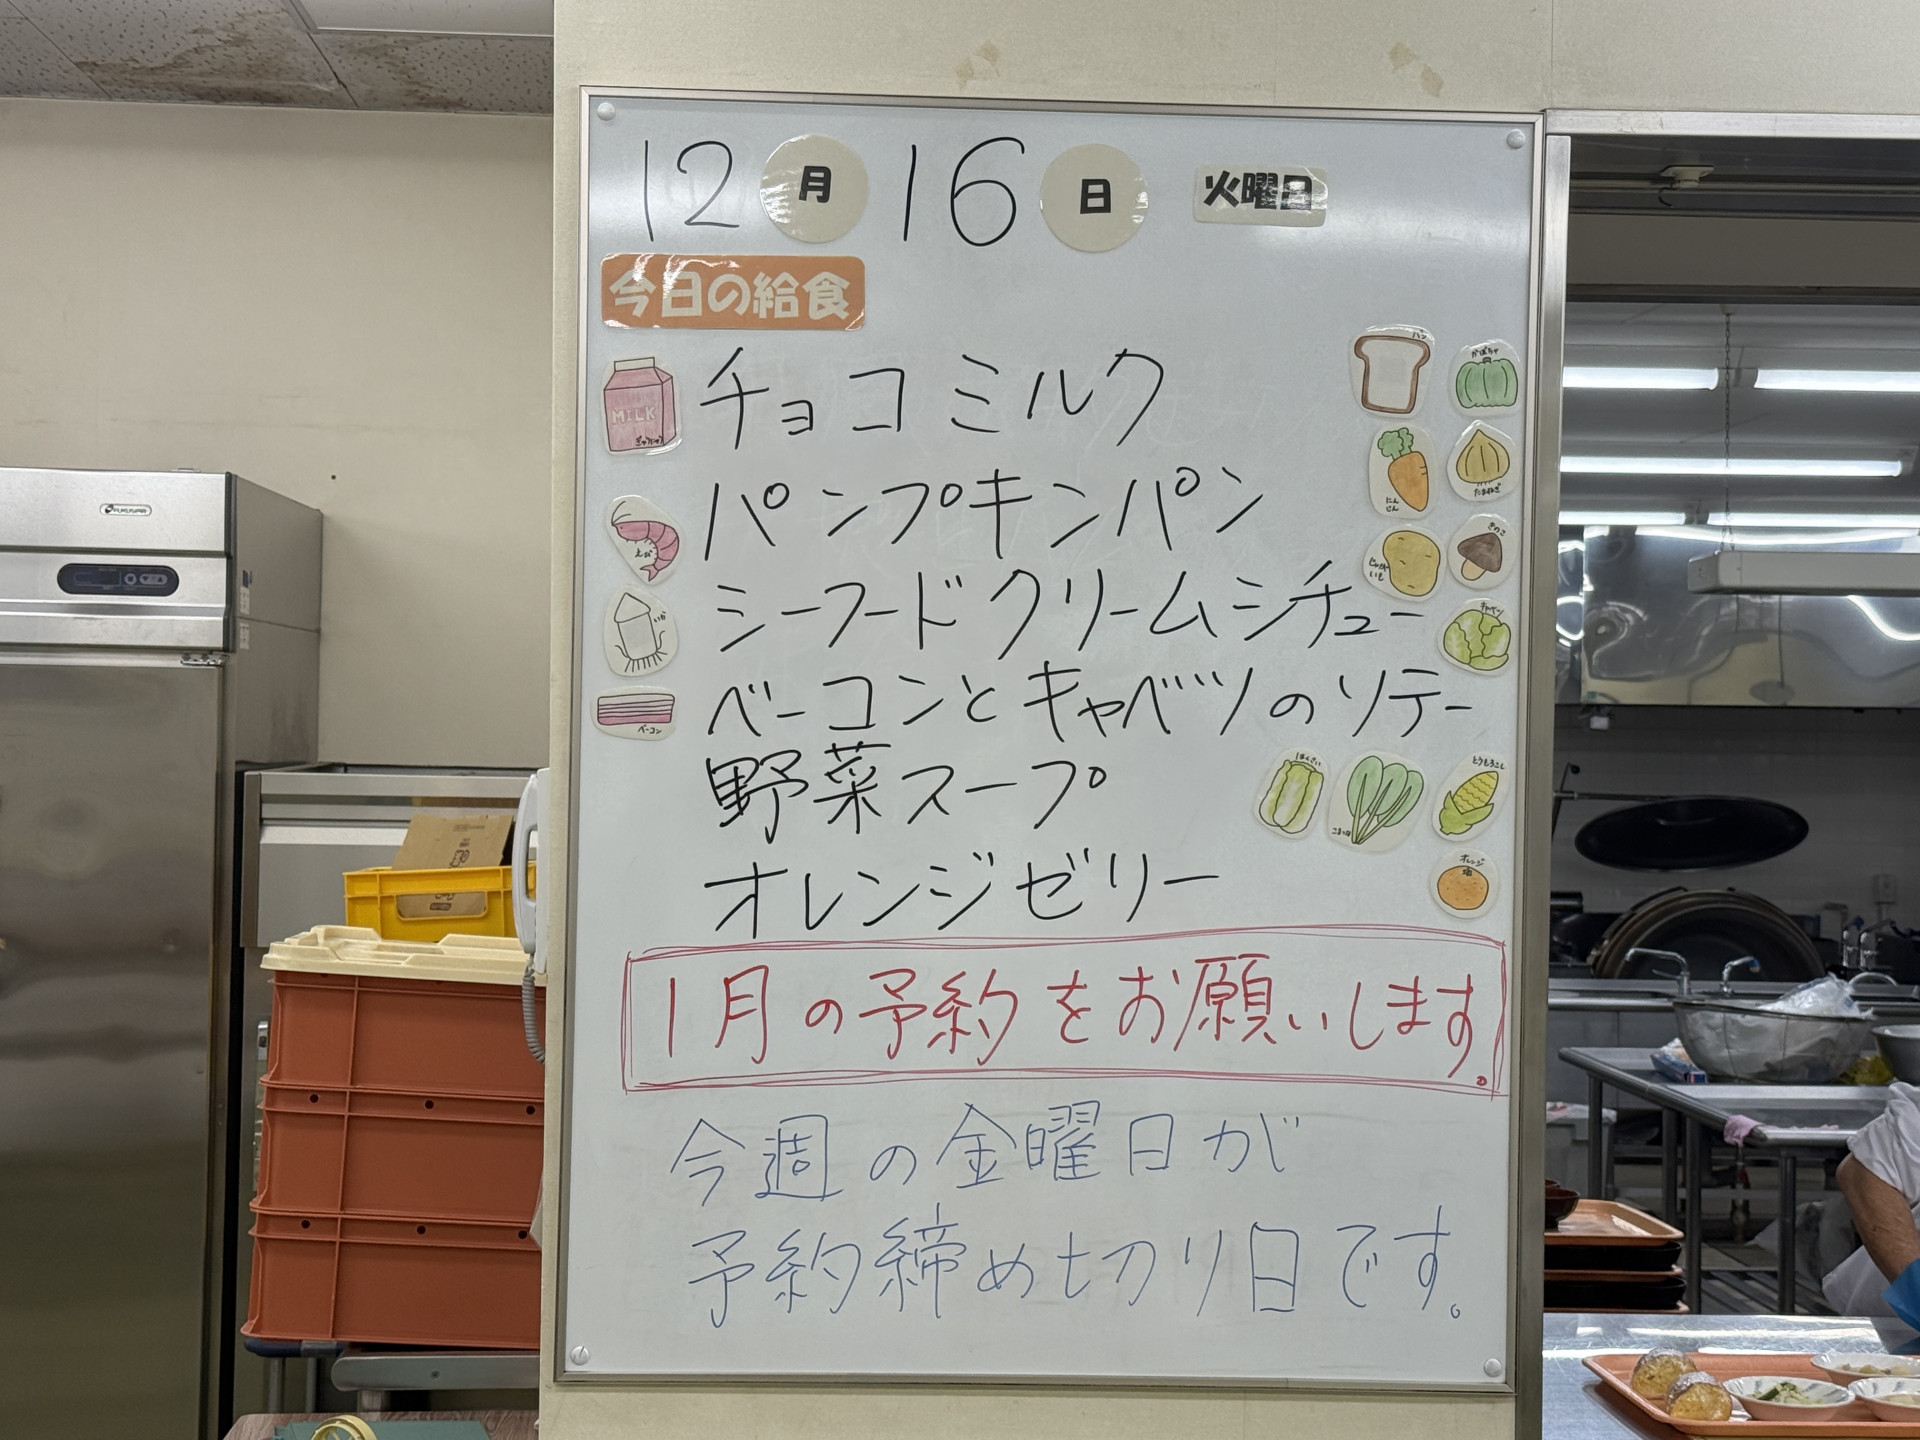 12月16日 火曜日
今日の給食
チョコミルク
パンプキンパン
シーフードクリームシチュー
ベーコンとキャベツのソテー
野菜スープ
オレンジゼリー
1月の予約をお願いします。
今週の金曜日が
予約締め切り日です。
MILK
ぎゅうにゅう
えび
いか
ベーコン
パン
かぼちゃ
にんじん
たまねぎ
じゃがいも
きのこ
キャベツ
はくさい
こまつな
とうもろこし
オレンジ
FUKUSHIMA